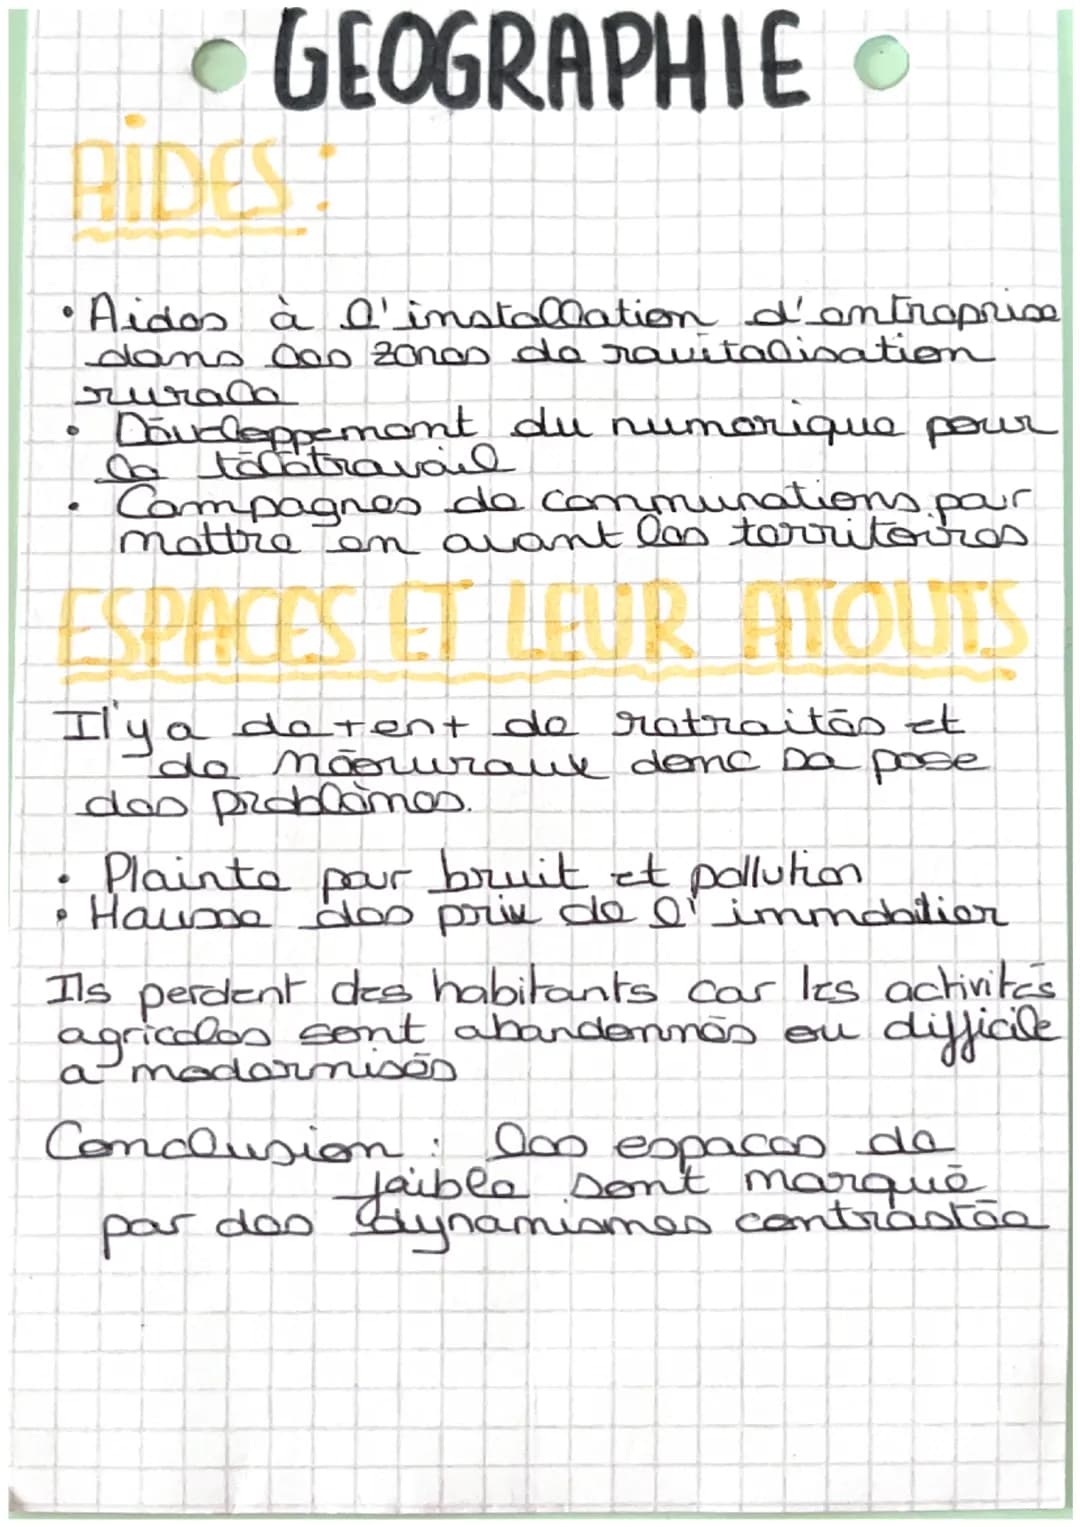 GEOGRAPHIE
AIDES :
• Aides à l'installation d'entreprise
dans les zones de revitalisation
rurale
• Développement du numerique pour
le télétravail
• Campagnes de communations par
mettre en avant les territoires
ESPACES ET LEUR ATOUTS
Il'y a de tent de retraités et
de néoruraux donc sa pose
des problèmes.
• Plainte par bruit et pollution
• Hausse des prix de l'immobilier
Ils perdent des habitants car les activités
agricoles sont abandonnés ou difficile
a modernisés
Conclusion : les espaces de
faible sont marqué
par des dynamismes contrastée